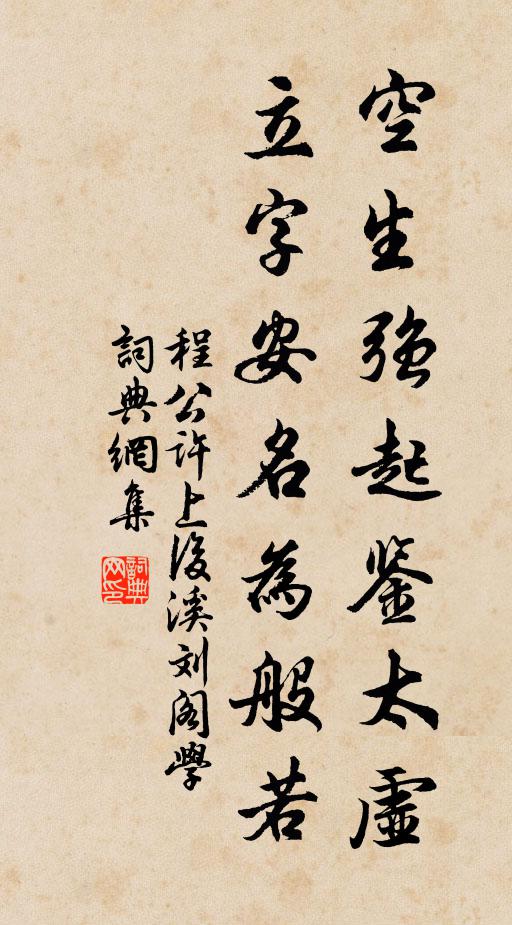 空生强起鉴太虛
立字安名為般若
程公许上後溪刘阁學
詞典網集
詞典網印